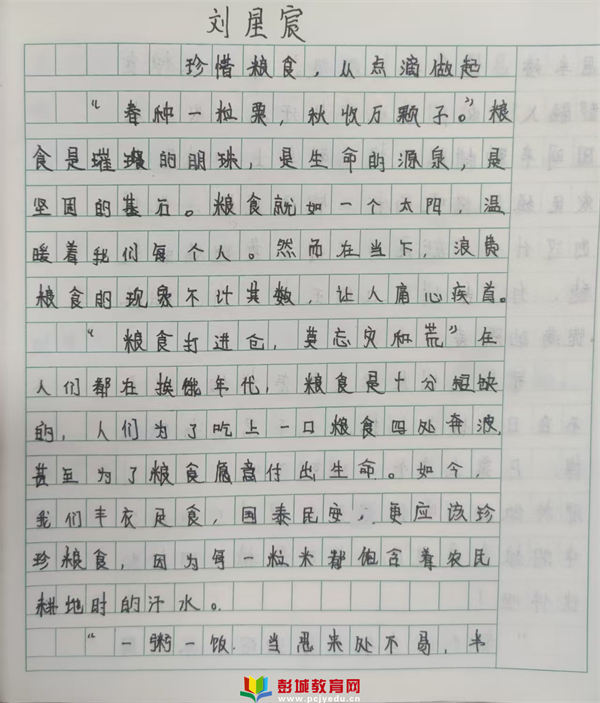 刘星宸
珍惜粮食，从点滴做起
“春种一粒粟，秋收万颗子。”粮
食是璀璨的明珠，是生命的源泉，是
坚固的基石。粮食就如一个太阳，温
暖着我们每个人。然而在当下，浪费
粮食的现象不计其数，让人痛心疾首。
“粮食打进仓，莫忘灾和荒”在
人们都在挨饿年代，粮食是十分短缺
的，人们为了吃上一口粮食四处奔波，
甚至为了粮食愿意付出生命。如今，
我们丰衣足食，国泰民安，更应该珍
珍粮食，因为每一粒米都饱含着农民
耕地时的汗水。
“一粥一饭，当思来处不易，半
彭城教育网
www.pcjyedu.cn